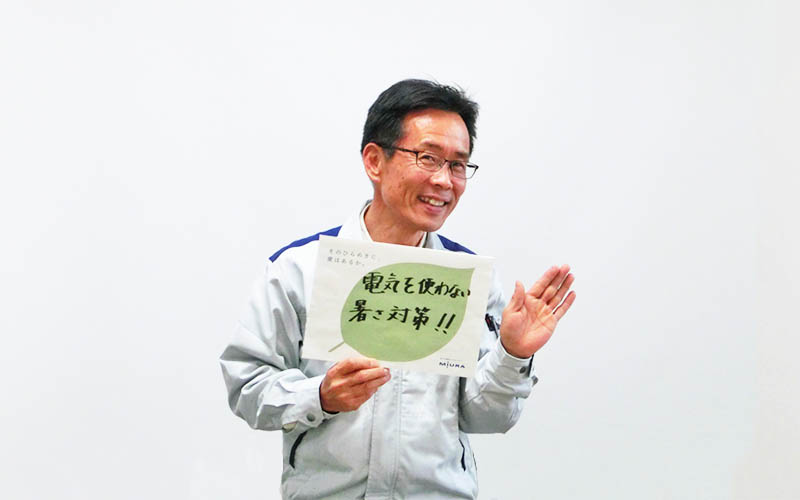 そのひらめきに、
愛はあるか。
電気を使わない
暑さ対策!!
MIURA